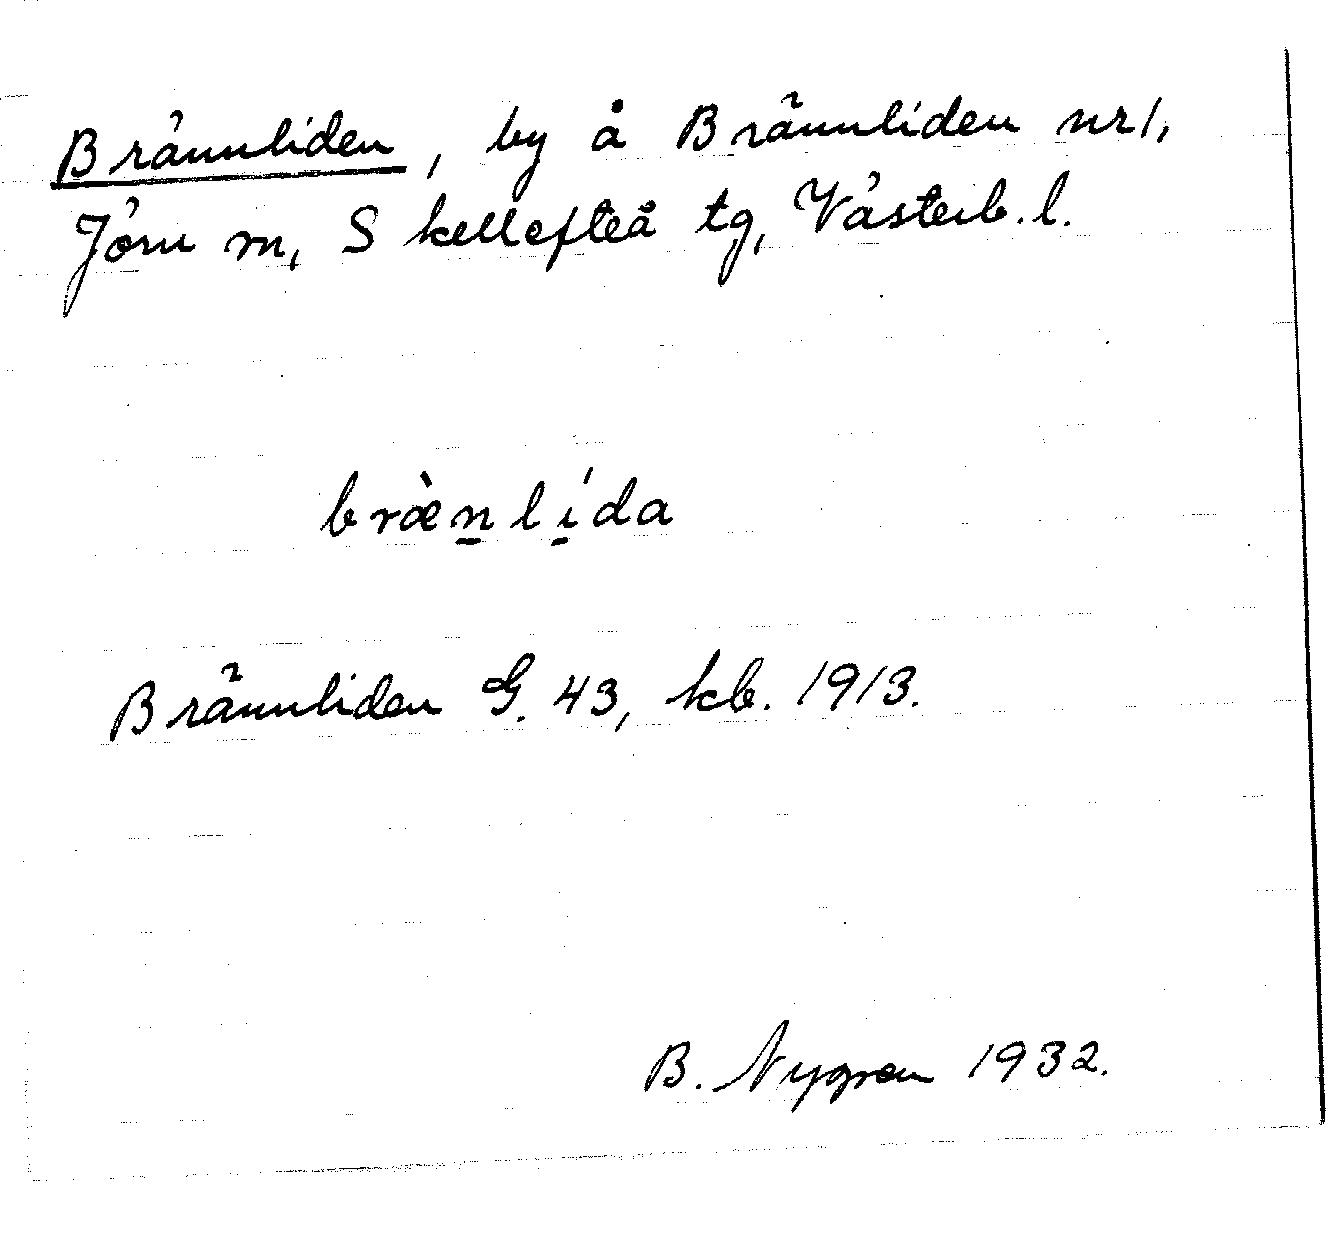 Brännliden, by å Brännliden nr 1,
Jörn sn, Skellefteå tg, Västerb. l.
bræ̀n̲lí̲da
Brännliden G. 43, kb. 1913.
B. Nygren 1932.